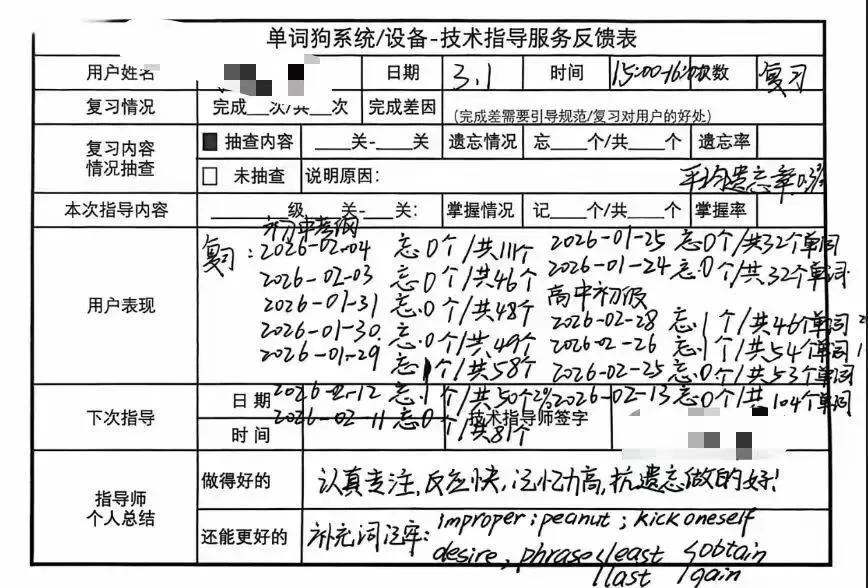 单词狗系统/设备-技术指导服务反馈表
用户姓名 日期 3.1 时间 15:00-16:00 次数 复习
复习情况 完成__次/共__次 完成差因 (完成差需要引导规范/复习对用户的好处)
复习内容情况抽查 抽查内容 ____关-____关 遗忘情况 忘____个/共____个 遗忘率
未抽查 说明原因: 平均遗忘率
本次指导内容 ____级 关-____关: 掌握情况 记____个/共____个 掌握率
用户表现
初中考纲
复习:2026-02-04 忘0个/共111个
2026-02-03 忘:0个/共46个
2026-01-31 忘:0个/共48个
2026-01-30 忘:0个/共49个
2026-01-29 忘1个/共58个
2026-02-12 忘:1个/共50个2%
2026-02-11 忘0个/共81个
2026-01-25 忘0个/共32个单词
2026-01-24 忘:0个/共32个单词
高中初级
2026-02-28 忘:1个/共46个单词2
2026-02-26 忘:1个/共54个单词1
2026-02-25 忘:0个/共53个单词
2026-02-13 忘:0个/共104个单词
下次指导 日期 时间 技术指导师签字
指导师个人总结
做得好的 认真专注,反应快,记忆力高,抗遗忘做的好!
还能更好的 补充词记牢:improper;peanut;kick oneself
desire,phrase least obtain
last gain